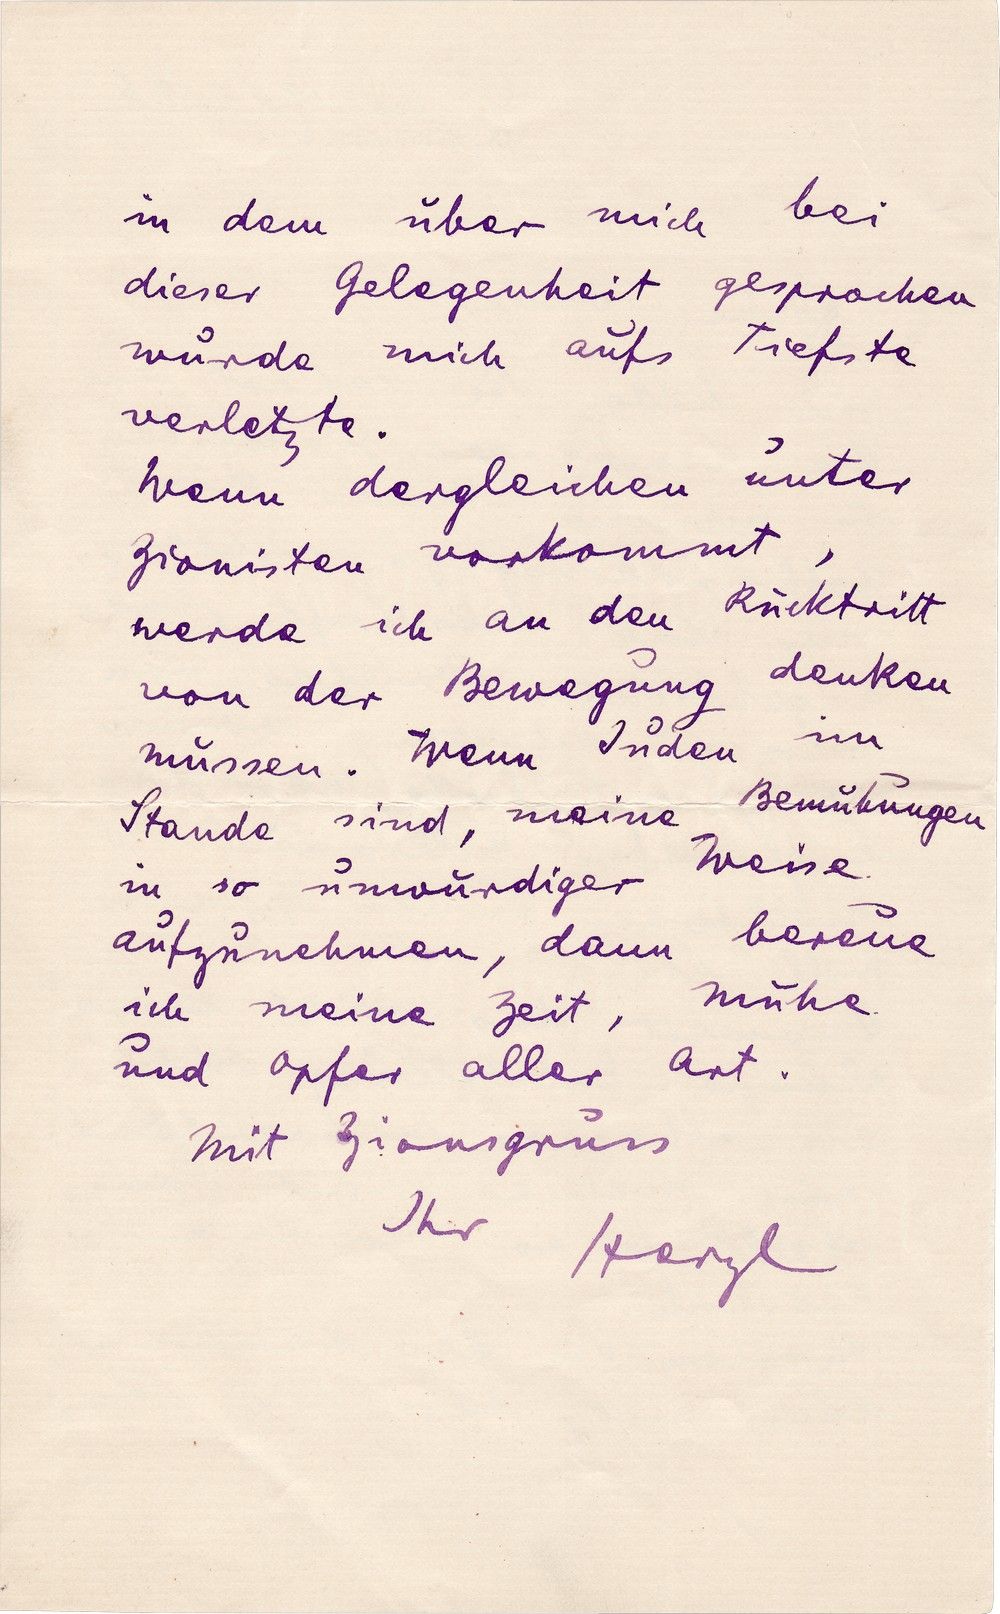 in dem über mich bei
dieser Gelegenheit gesprochen
wurde mich aufs Tiefste
verletzte.
Wenn dergleichen unter
Zionisten vorkommt,
werde ich an den Rücktritt
von der Bewegung denken
müssen. Wenn Juden im
Stande sind, meine Bemühungen
in so unwürdiger Weise
aufzunehmen, dann bereue
ich meine Zeit, Mühe
und Opfer aller Art.
Mit Zionsgruss
Ihr Herzl